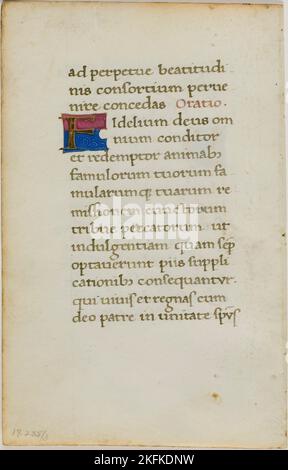 ad perpetue beatitudi
nis consortium perve
nire concedas Oratio.
Fidelium deus om
nium conditor
et redemptor animabꝫ
famulorum tuorum fa
mularumqꝫ tuarum re
missionem cunctorum
tribue peccatorum ut
indulgentiam quam sēp
optaverunt piis suppli
cationibꝫ consequantur.
qui vivis et regnas cum
deo patre in unitate spūs
19.235/3
alamy
Image ID: 2KFKDNW
www.alamy.com